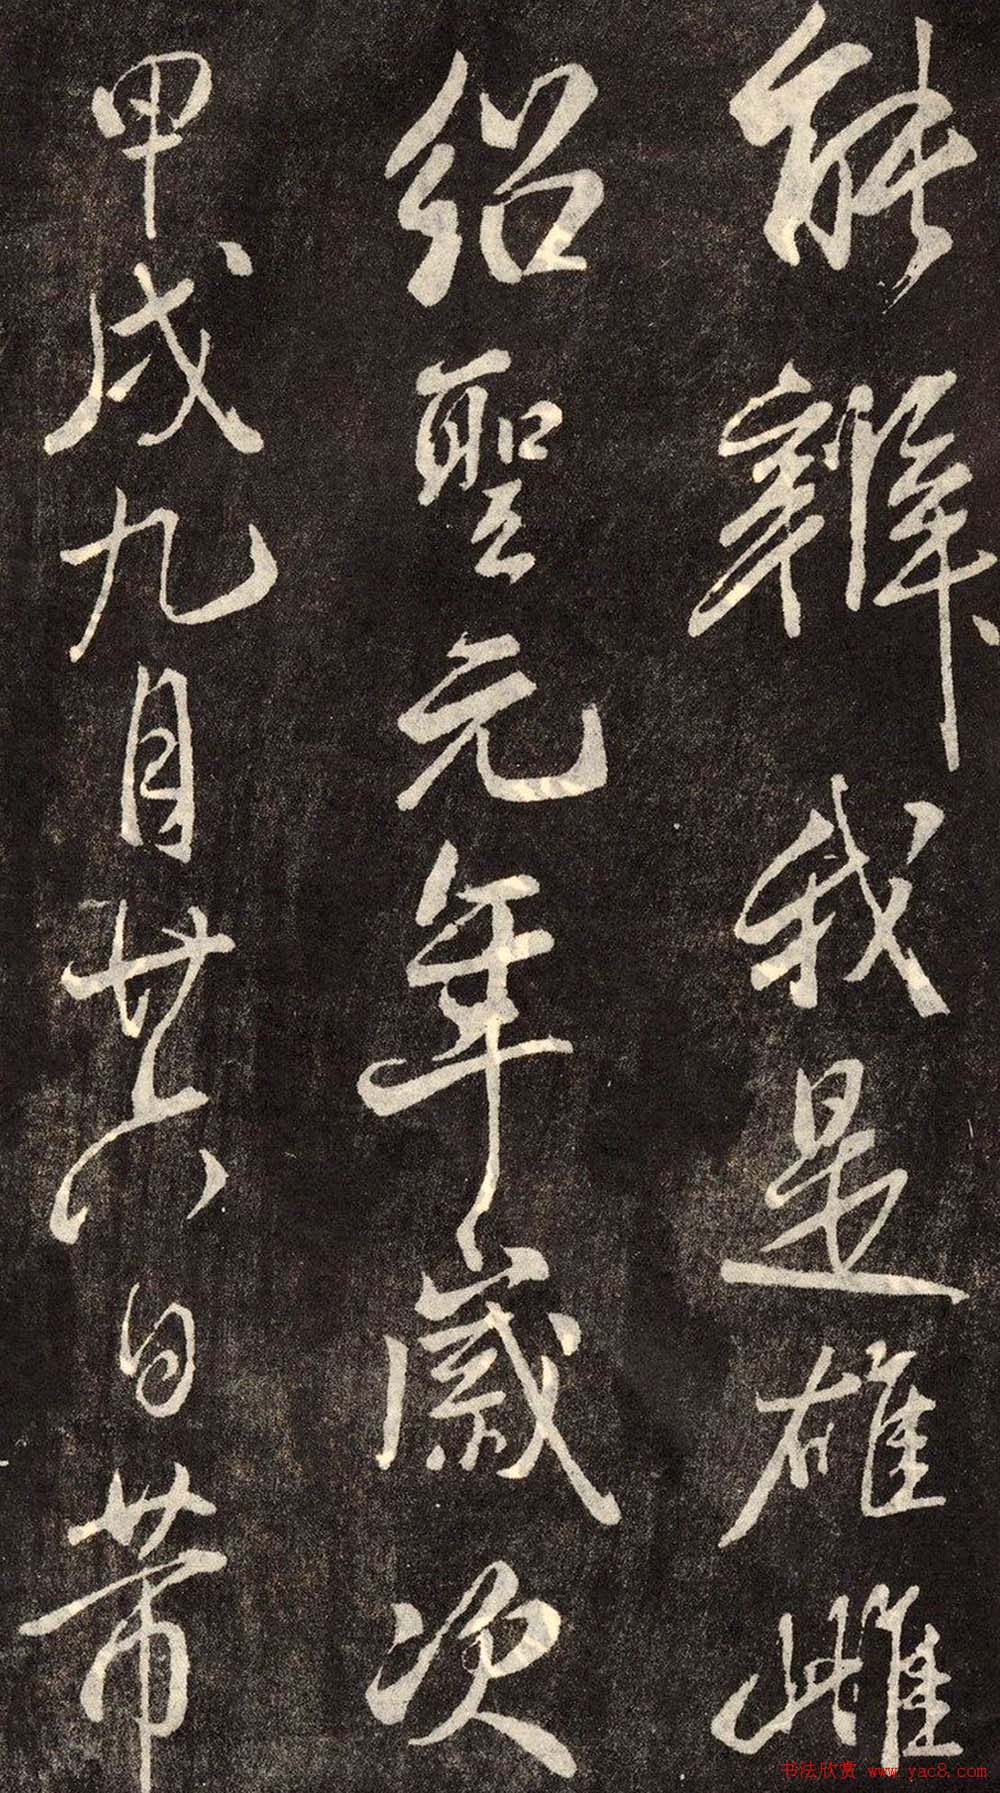 能辨我是雄雌
紹聖元年歲次
甲戌九月廿六日帶
书法欣赏 www.yac8.com